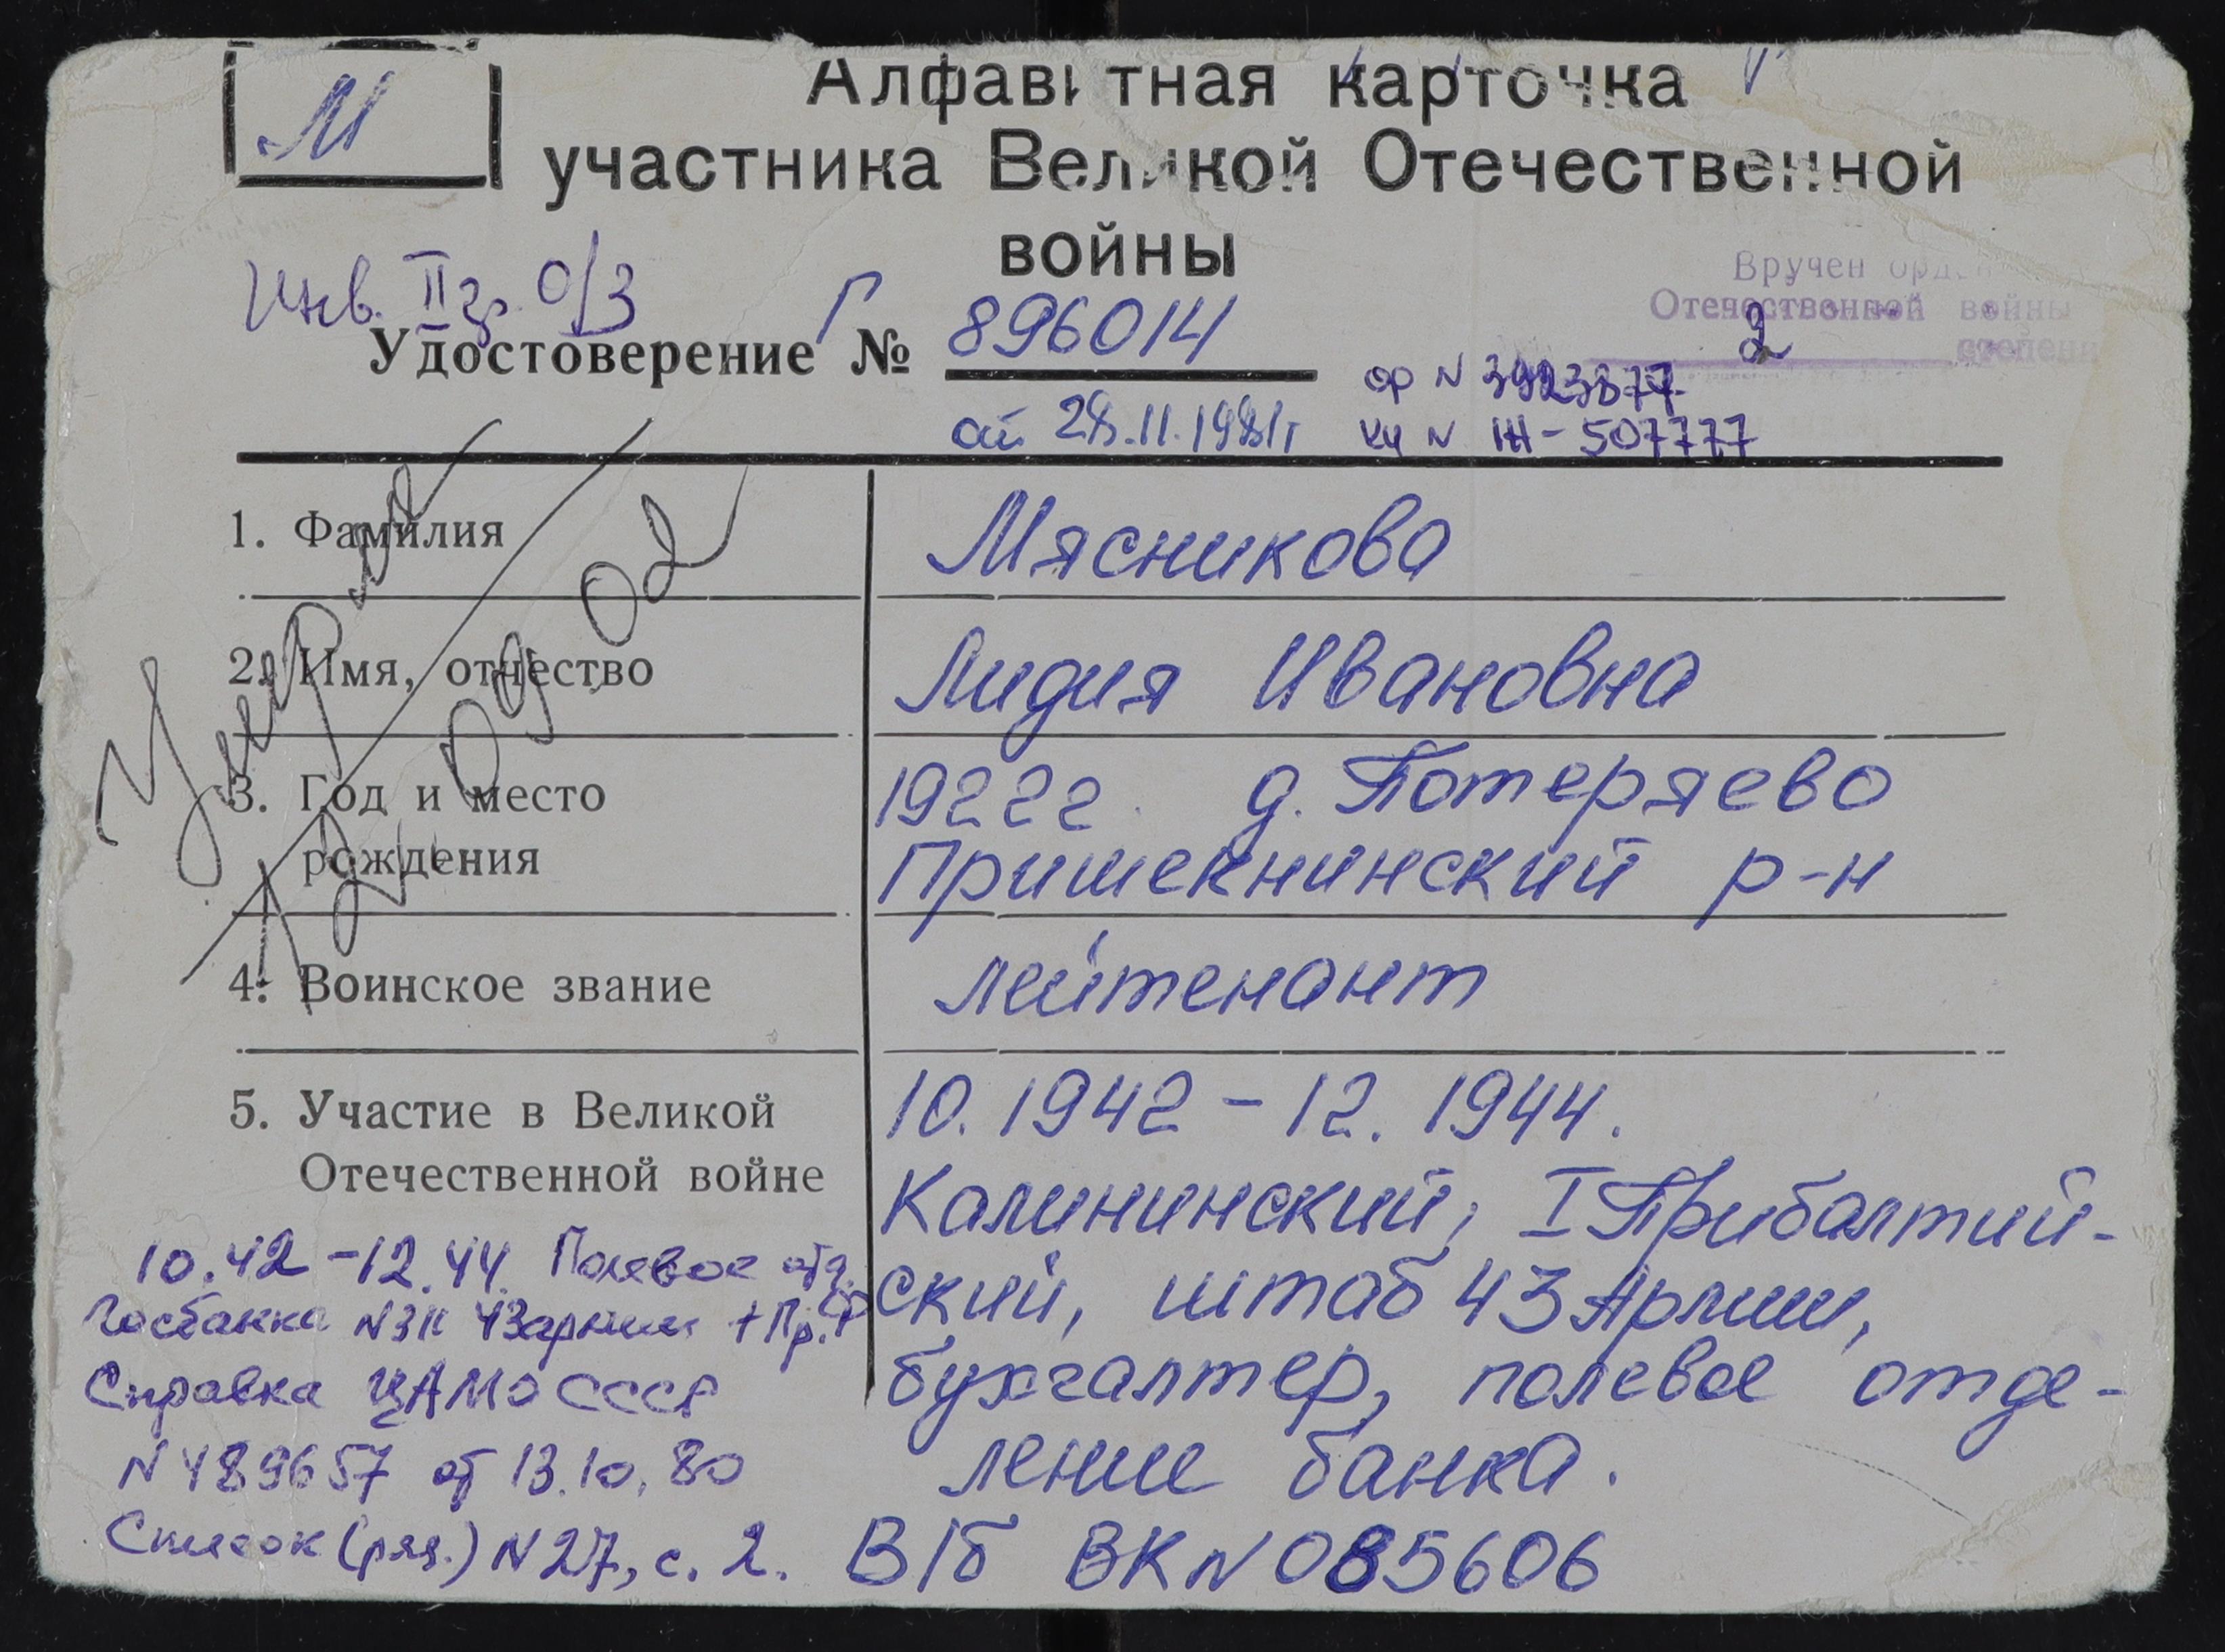 М
Алфавитная карточка
участника Великой Отечественной
войны
Инв. II гр. О/З
Вручен орде
Отечественной войны
2 степени
Удостоверение Г № 896014
от 28.11.1981г
ор N 3923877
кч N IH-507777
Умерла
1. Фамилия Мясникова
2. Имя, отчество Лидия Ивановна
3. Год и место 1922г. д. Потеряево
рождения Пришекнинский р-н
4. Воинское звание лейтенант
5. Участие в Великой 10.1942-12.1944.
Отечественной войне Калининский, I Прибалтий-
ский, штаб 43 Армии,
бухгалтер, полевое отде-
ление банка.
В/б ВК N 085606
10.42-12.44. Полевое отд.
Госбанка N311 43армии + Пр.Ф
Справка ЦАМО СССР
N489657 от 13.10.80
Список (ряз.) N27, с. 2.